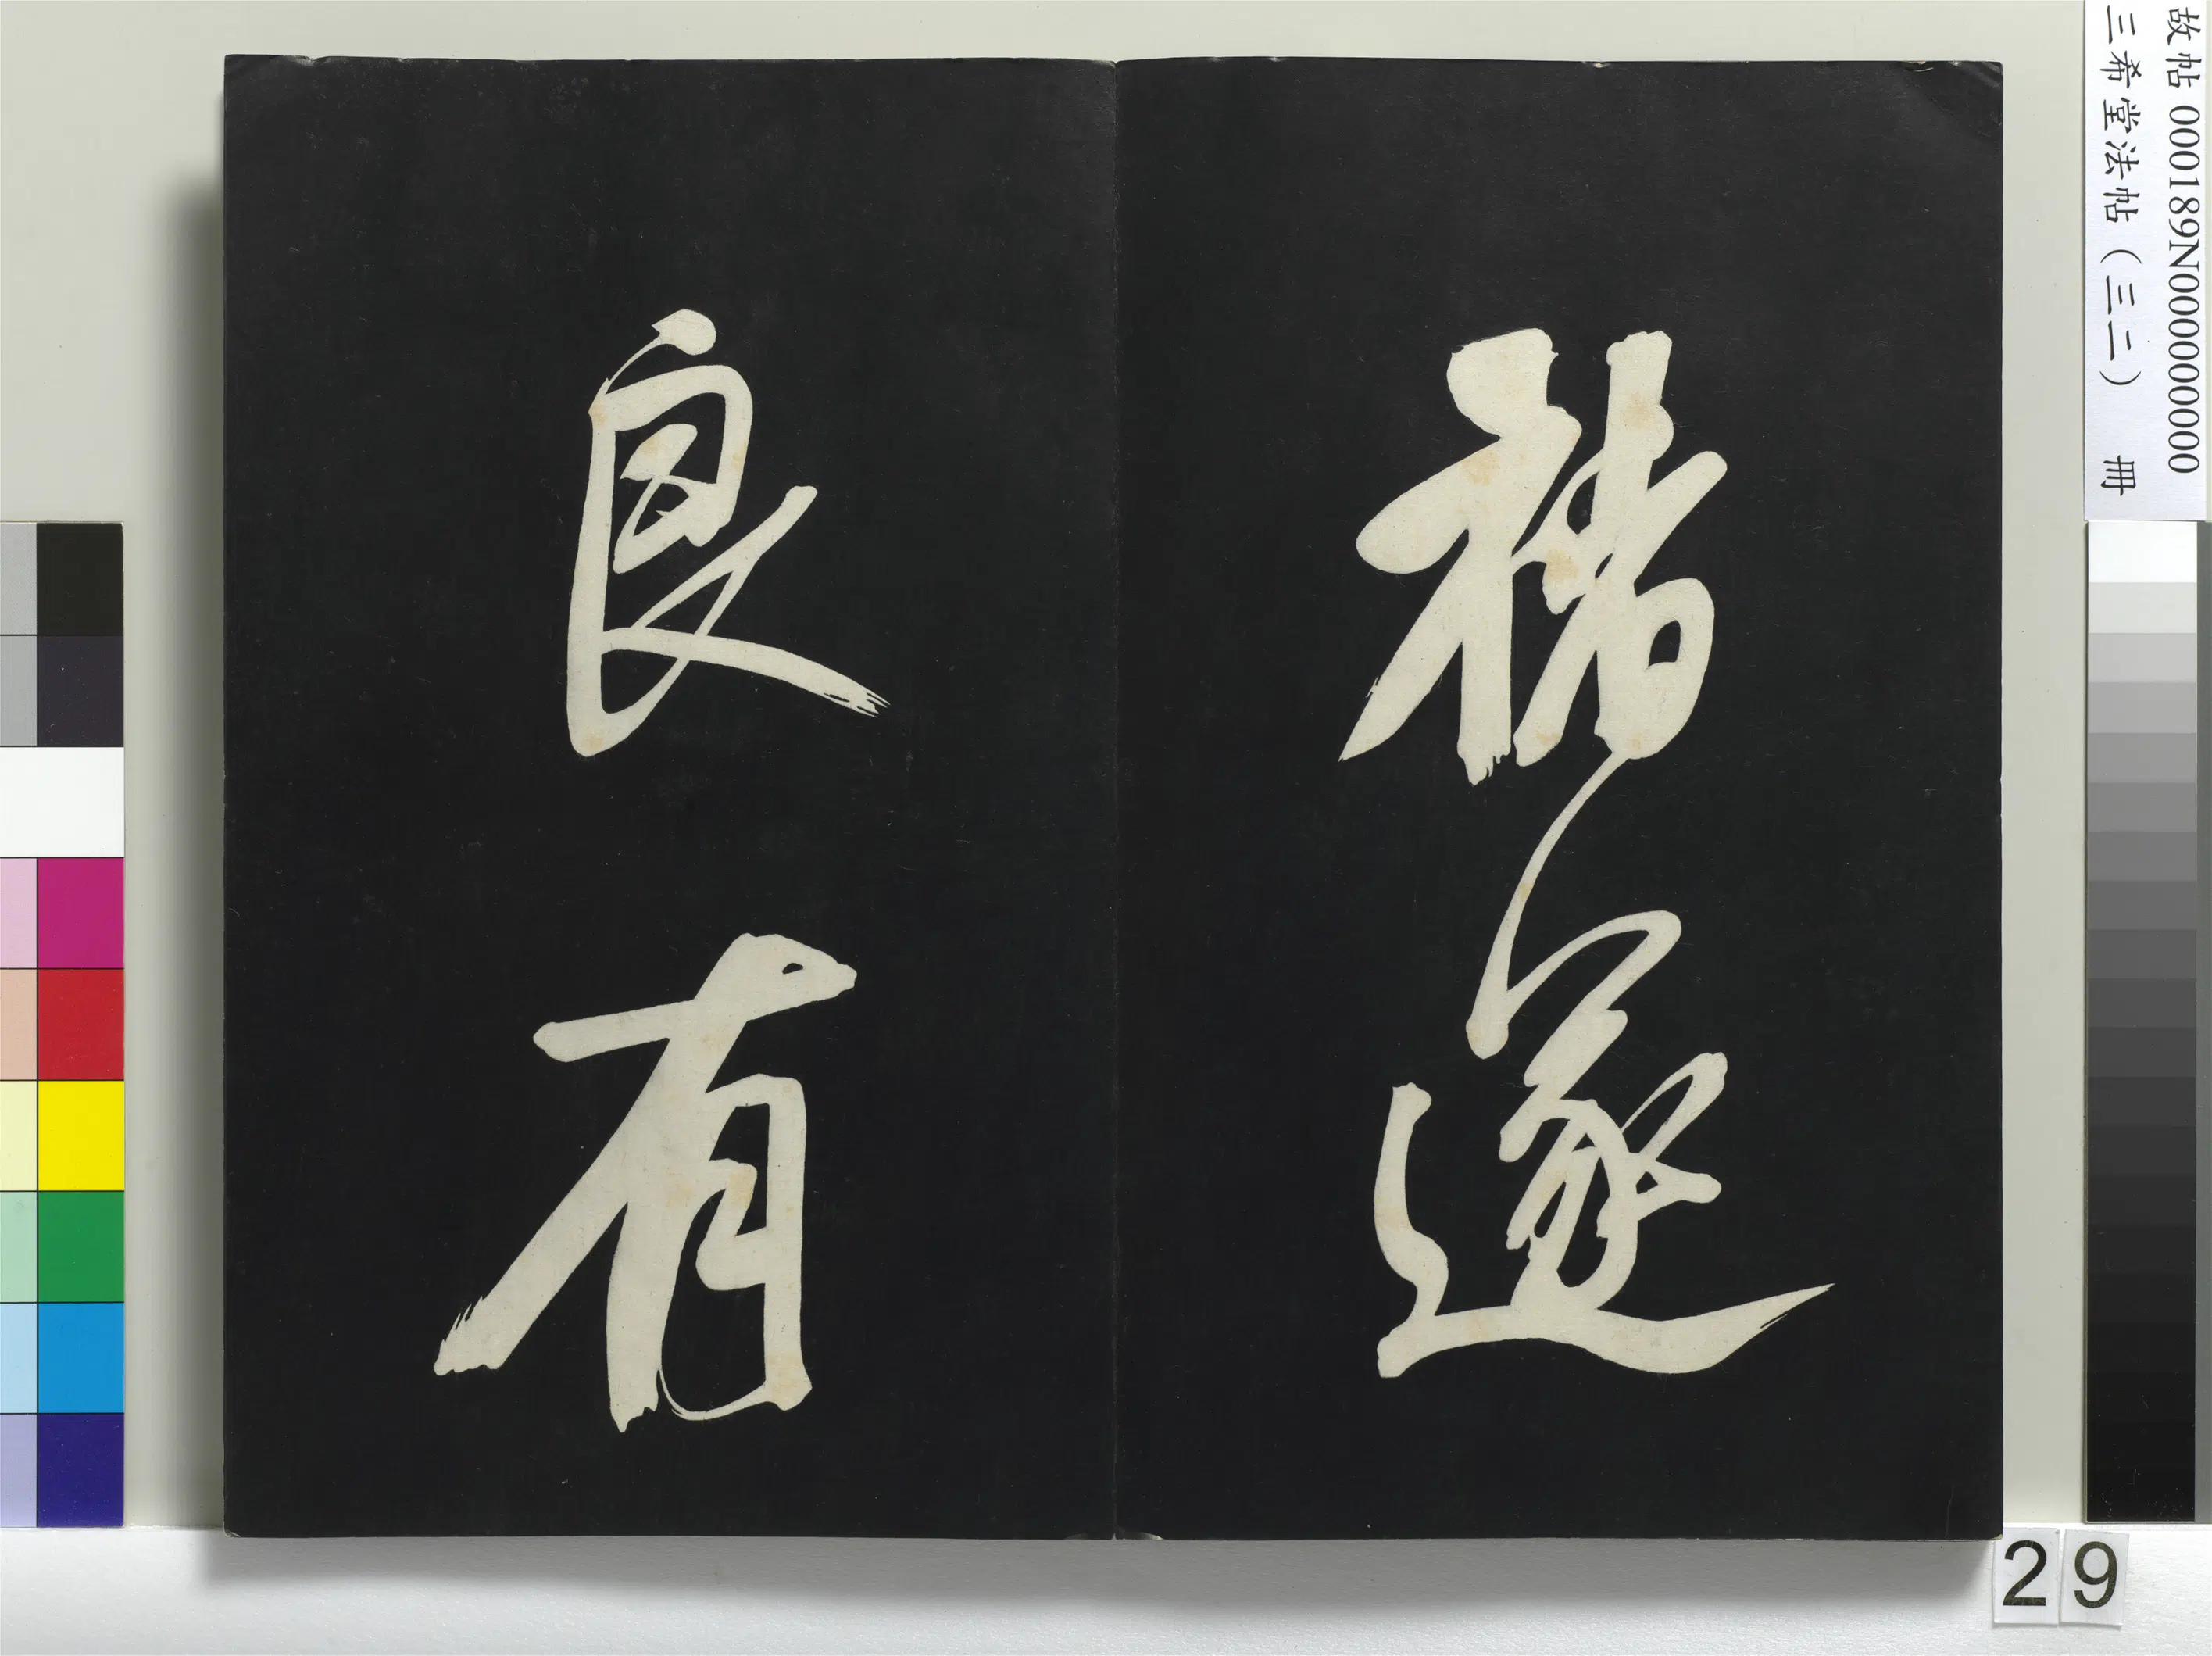 故帖 000189N000000000
三希堂法帖（三二） 冊
褚遂
良有
29